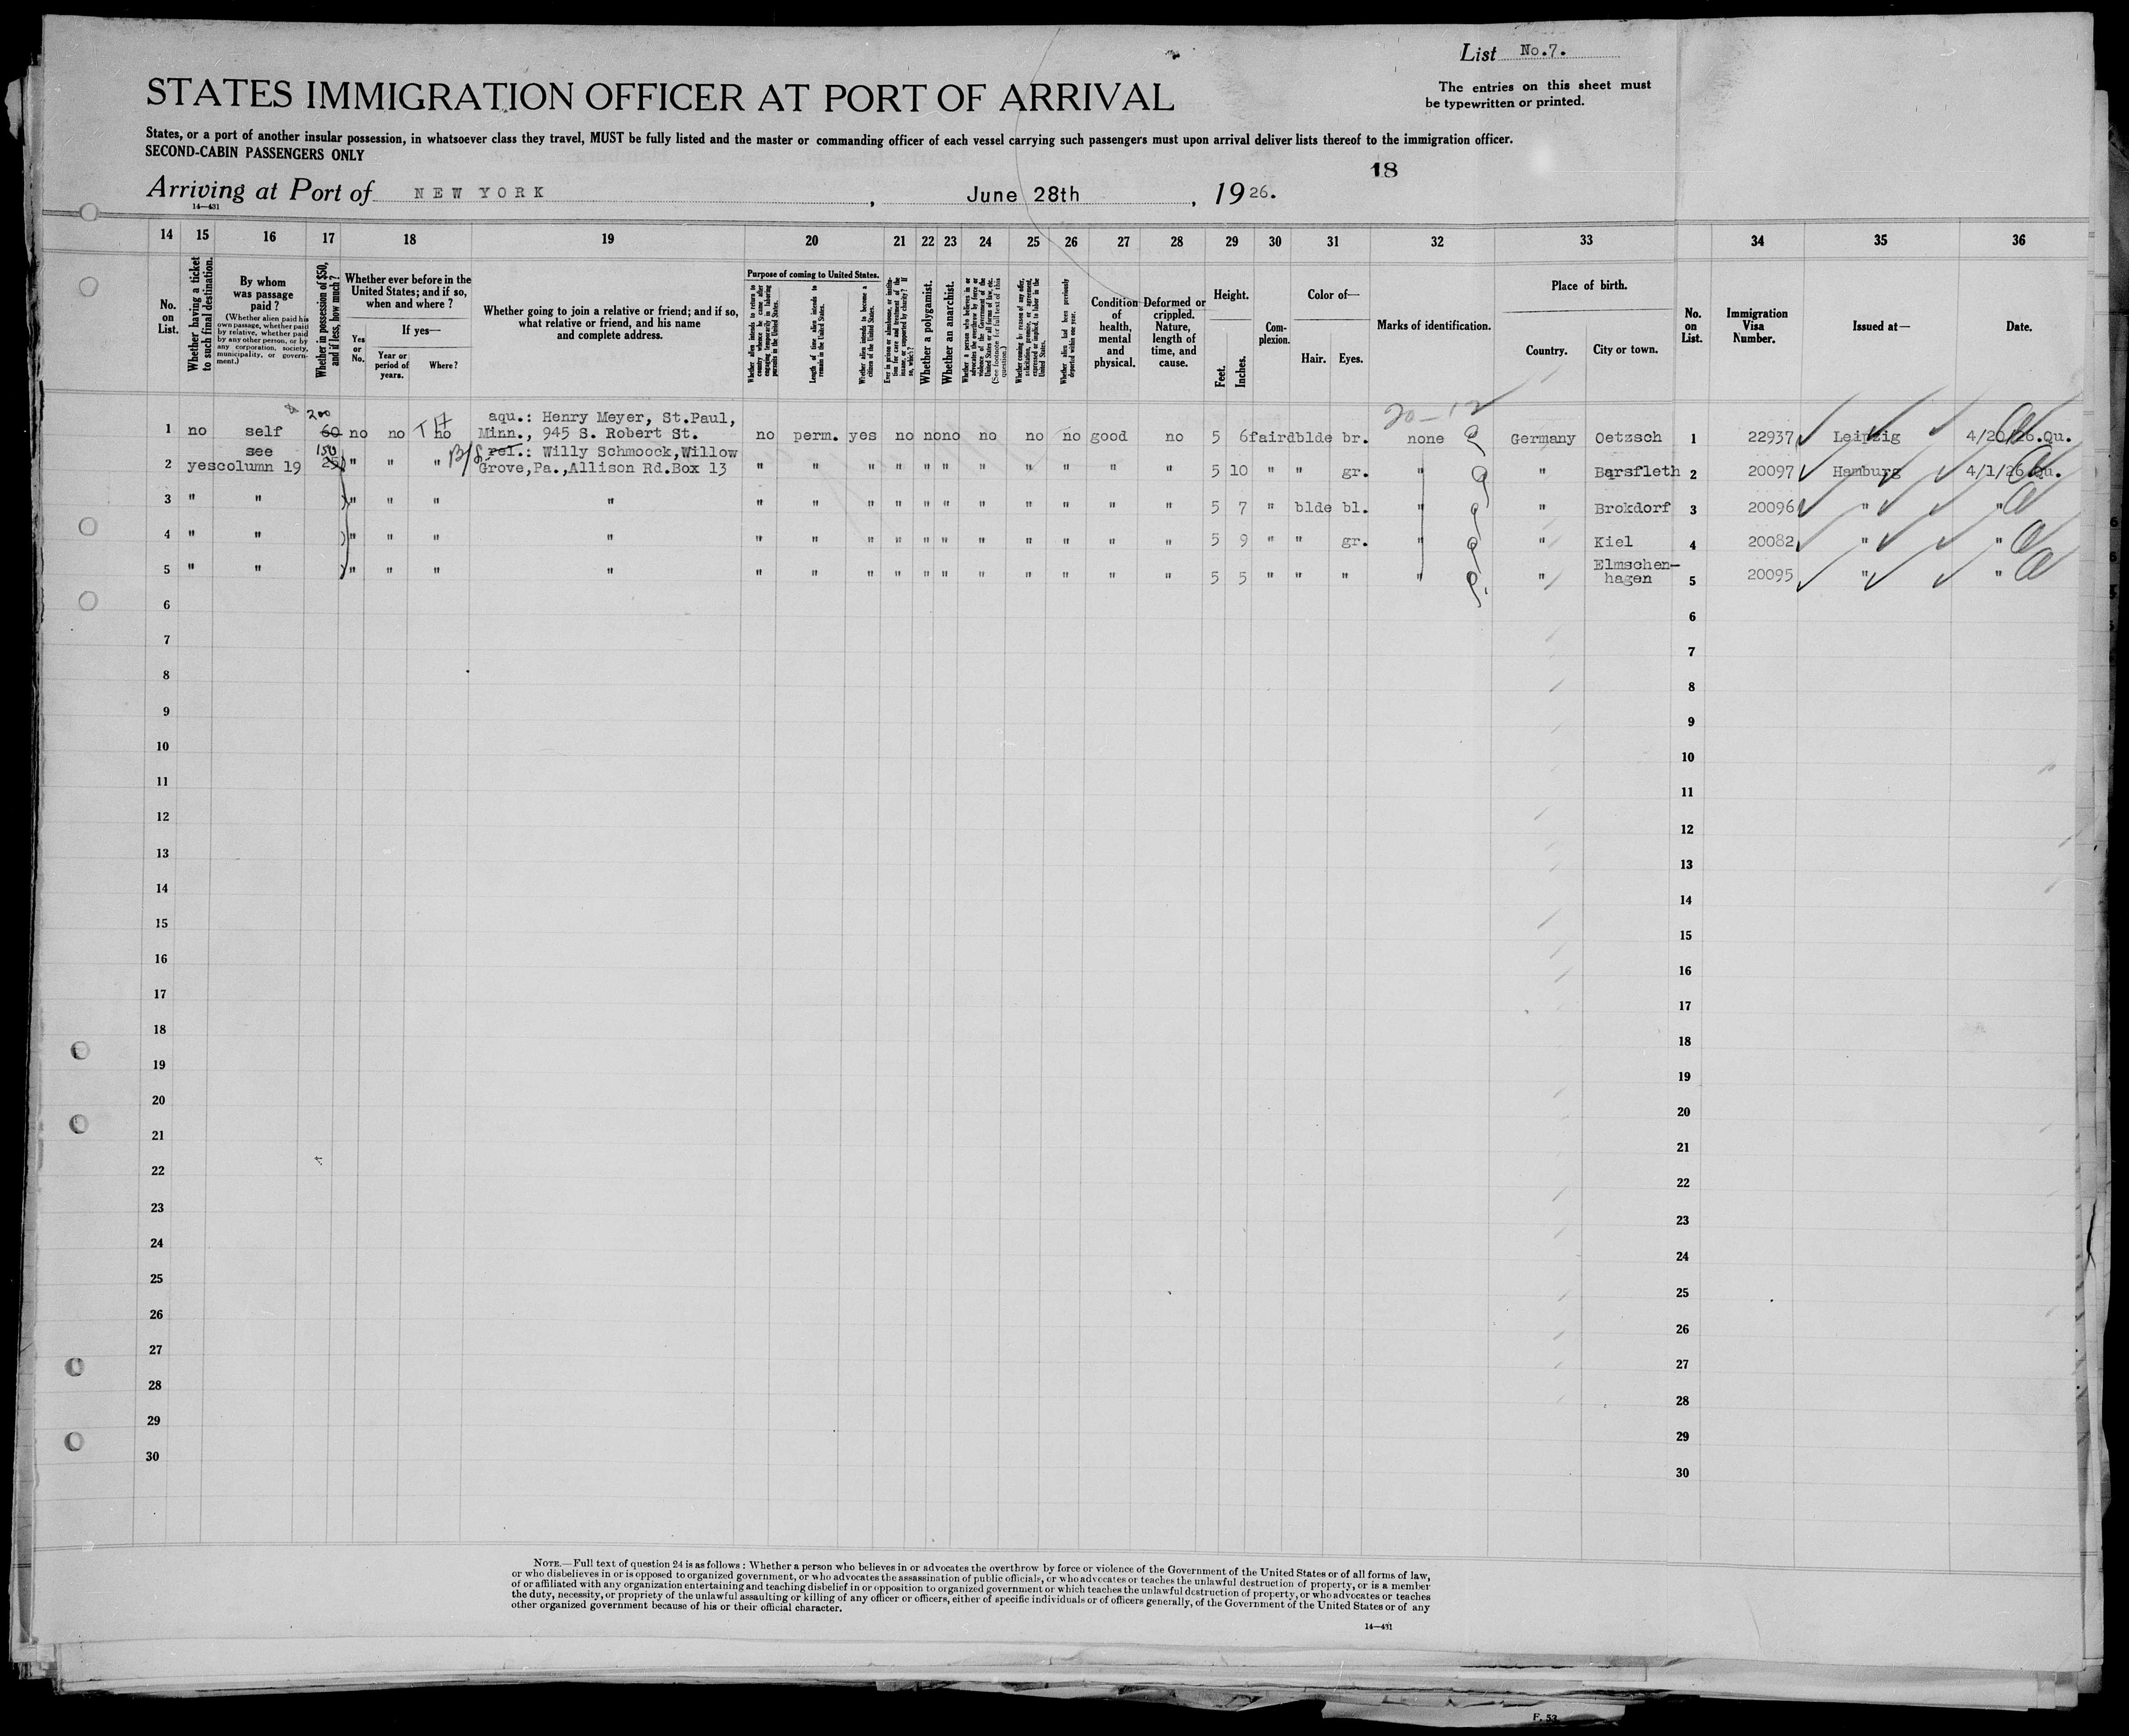 List No.7.
The entries on this sheet must
be typewritten or printed.
STATES IMMIGRATION OFFICER AT PORT OF ARRIVAL
States, or a port of another insular possession, in whatsoever class they travel, MUST be fully listed and the master or commanding officer of each vessel carrying such passengers must upon arrival deliver lists thereof to the immigration officer.
SECOND-CABIN PASSENGERS ONLY
18
Arriving at Port of NEW YORK, June 28th, 1926.
14—431
14 15 16 17 18 19 20 21 22 23 24 25 26 27 28 29 30 31 32 33 34 35 36
No. on List.
Whether having a ticket to such final destination.
By whom was passage paid?
(Whether alien paid his own passage, whether paid by relative, whether paid by any other person, or by any corporation, society, municipality, or government.)
Whether in possession of $50, and if less, how much?
Whether ever before in the United States; and if so, when and where?
Yes or No.
If yes—
Year or period of years.
Where?
Whether going to join a relative or friend; and if so, what relative or friend, and his name and complete address.
Purpose of coming to United States.
Whether alien intends to return to country whence he came after engaging temporarily in laboring pursuits in the United States.
Length of time alien intends to remain in the United States.
Whether alien intends to become a citizen of the United States.
Ever in prison or almshouse, or institution for care and treatment of the insane, or supported by charity? If so, which?
Whether a polygamist.
Whether an anarchist.
Whether a person who believes in or advocates the overthrow by force or violence of the Government of the United States or all forms of law, etc. (See footnote for full text of this question.)
Whether coming by reason of any offer, solicitation, promise, or agreement, expressed or implied, to labor in the United States.
Whether alien had been previously deported within one year.
Condition of health, mental and physical.
Deformed or crippled. Nature, length of time, and cause.
Height.
Feet. Inches.
Complexion.
Color of—
Hair. Eyes.
Marks of identification.
Place of birth.
Country. City or town.
No. on List.
Immigration Visa Number.
Issued at—
Date.
20-12
200
1 no self 60 no no no TH aqu.: Henry Meyer, St.Paul,
Minn., 945 S. Robert St. no perm. yes no no no no no no good no 5 6 fair dblde br. none Germany Oetzsch 1 22937 Leipzig 4/20/26.Qu.
150
2 yes see column 19 25 " " " B/S rel.: Willy Schmoock,Willow
Grove,Pa.,Allison Rd.Box 13 " " " " " " " " " " " 5 10 " " gr. " " Barsfleth 2 20097 Hamburg 4/1/26.Qu.
3 " " " " " " " " " " " " " " " " " 5 7 " blde bl. " " Brokdorf 3 20096 " "
4 " " " " " " " " " " " " " " " " " 5 9 " " gr. " " Kiel 4 20082 " "
5 " " " " " " " " " " " " " " " " " 5 5 " " " " " Elmschen-
hagen 5 20095 " "
6 6
7 7
8 8
9 9
10 10
11 11
12 12
13 13
14 14
15 15
16 16
17 17
18 18
19 19
20 20
21 21
22 22
23 23
24 24
25 25
26 26
27 27
28 28
29 29
30 30
NOTE.—Full text of question 24 is as follows: Whether a person who believes in or advocates the overthrow by force or violence of the Government of the United States or of all forms of law,
or who disbelieves in or is opposed to organized government, or who advocates the assassination of public officials, or who advocates or teaches the unlawful destruction of property, or is a member
of or affiliated with any organization entertaining and teaching disbelief in or opposition to organized government or which teaches the unlawful destruction of property, or who advocates or teaches
the duty, necessity, or propriety of the unlawful assaulting or killing of any officer or officers, either of specific individuals or of officers generally, of the Government of the United States or of any
other organized government because of his or their official character.
14—431
F. 53